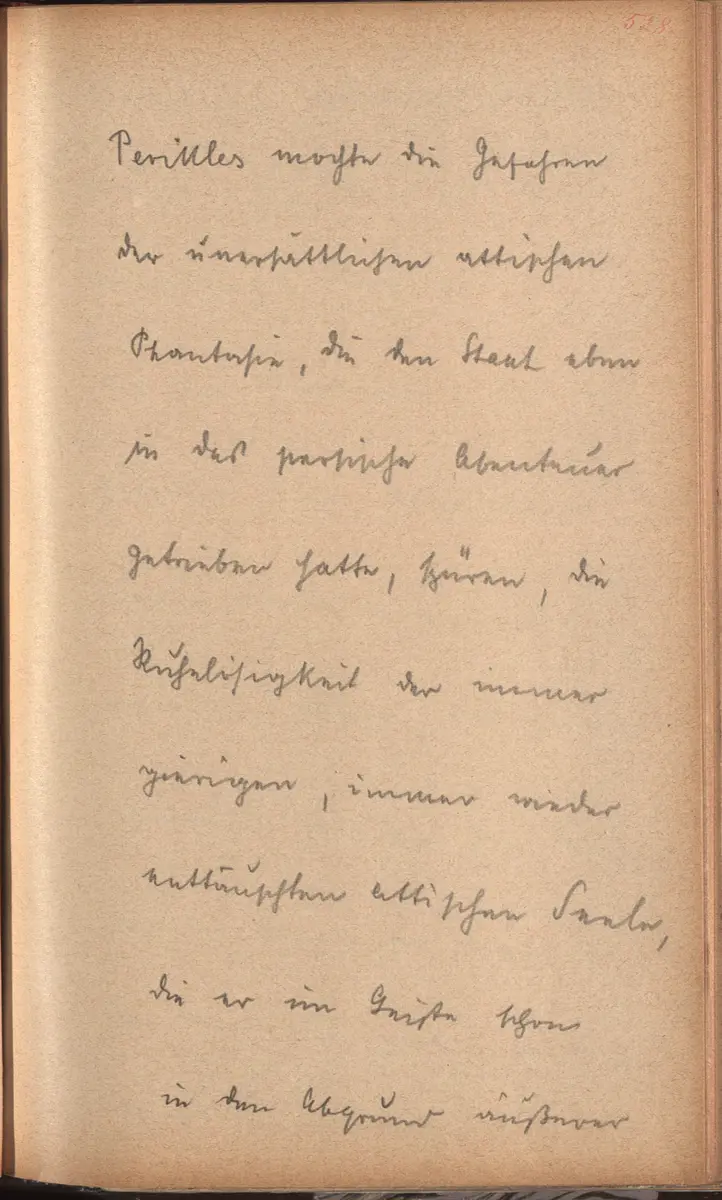 528
Perikles mochte die Gefahren
der unersättlichen attischen
Phantasie, die den Staat eben
in das persische Abenteuer
getrieben hatte, spüren, die
Ruhelosigkeit der immer
gierigen, immer wieder
enttäuschten attischen Seele,
die er im Geiste schon
in den Abgrund äußerer